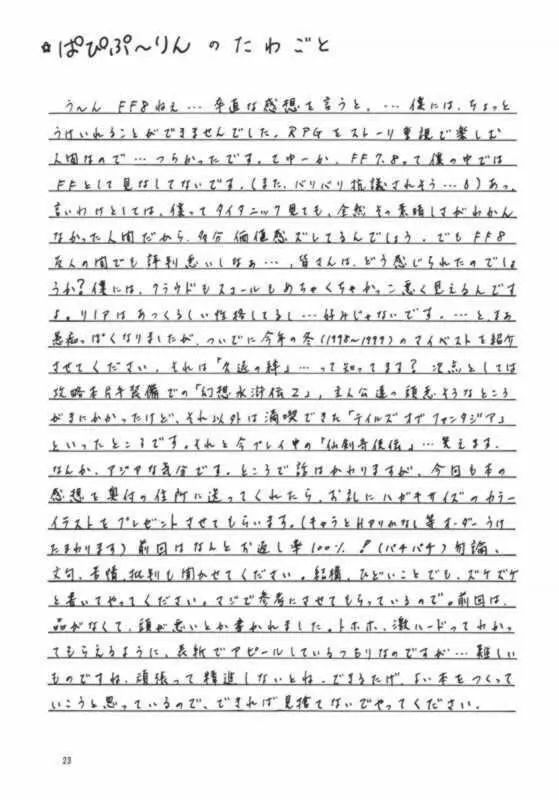 ☆ぱぴぷ〜りんのたわごと
う〜ん FF8ねぇ…率直な感想を言うと、…僕には、ちょっと
うけいれることができませんでした。RPGをストーリー重視で楽しむ
人間なので…つらかったです。てゆーか、FF7、8って僕の中では
FFとして見なしてないです。(また、バリバリ抗議されそう…6)あっ、
言いわけとしては、僕ってタイタニック見ても、全然その素晴しさがわかん
なかった人間だから、多分価値感ズレてるんでしょう。でもFF8
友人の間でも評判悪いしなぁ…、皆さんは、どう感じられたのでしょ
うか?僕には、クラウドもスコールもめちゃくちゃかっこ悪く見えるんです
よ。リノアはあつくるしい性格してるし…好みじゃないです。…と、まぁ
愚痴っぽくなりましたが、ついでに今年の冬(1998〜1999)のマイベストを紹介
させてください。それは「久遠の絆」…って知ってます?次点としては
攻略本片手装備での「幻想水滸伝2」、主人公達の頭悪そうなところ
がきにかかったけど、それ以外は満喫できた「テイルズオブファンタジア」
といったところです。それと今プレイ中の「仙剣奇侠伝」…笑えます。
なんか、アジアな気分です。ところで話はかわりますが、今回も本の
感想を奥付の住所に送ってくれたら、お礼にハガキサイズのカラー
イラストをプレゼントさせてもらいます。(キャラとHアリかなし等オーダーうけ
たまわります)前回はなんとお返し率100%!(パチパチ)勿論、
文句、苦情、批判も聞かせてください。結構、ひどいことでも、ズケズケ
と書いてやってください。マジで参考にさせてもらっているので。前回は、
品がなくて、頭が悪いとか書かれました。トホホ、激ハードってわかっ
てもらえるように、表紙でアピールしているつもりなのですが…難しい
ものですね、頑張って精進しないとね。できるだけ、よい本をつくって
いこうと思っているので、できれば見捨てないでやってください。
23